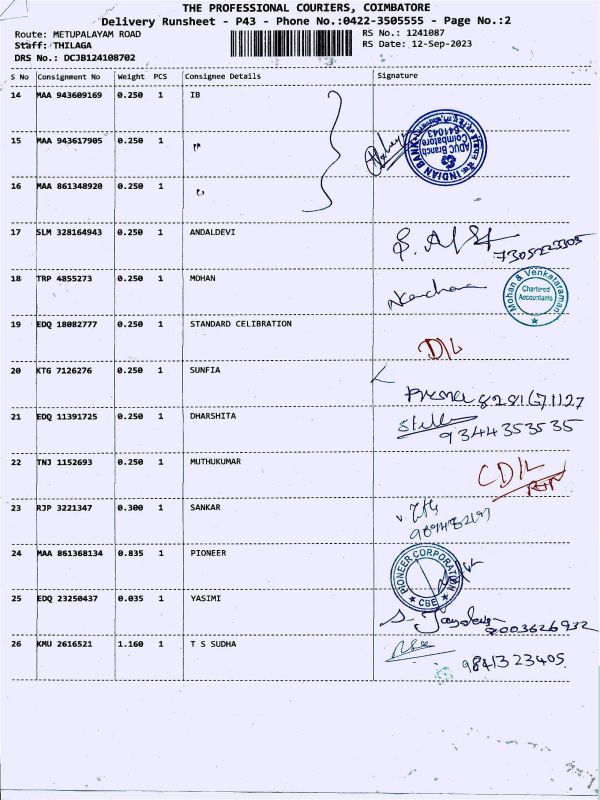 THE PROFESSIONAL COURIERS, COIMBATORE
Delivery Runsheet - P43 - Phone No.:0422-3505555 - Page No.:2
Route: METUPALAYAM ROAD RS No.: 1241087
Staff: THILAGA RS Date: 12-Sep-2023
DRS No.: DCJB124108702
S No Consignment No Weight PCS Consignee Details Signature
14 MAA 943609169 0.250 1 IB
15 MAA 943617905 0.250 1 "
INDIAN BANK
ADUC Branch
Coimbatore
641043
16 MAA 861348920 0.250 1 "
17 SLM 328164943 0.250 1 ANDALDEVI
7305223305
18 TRP 4855273 0.250 1 MOHAN
Mohan & Venkataraman
Chartered
Accountants
19 EDQ 18082777 0.250 1 STANDARD CELIBRATION
D/L
20 KTG 7126276 0.250 1 SUNFIA
21 EDQ 11391725 0.250 1 DHARSHITA
9344353535
22 TNJ 1152693 0.250 1 MUTHUKUMAR
CD/L
23 RJP 3221347 0.300 1 SANKAR
24 MAA 861368134 0.835 1 PIONEER
PIONEER CORPORATION
CBE
25 EDQ 23250437 0.035 1 YASIMI
26 KMU 2616521 1.160 1 T S SUDHA
9841323405